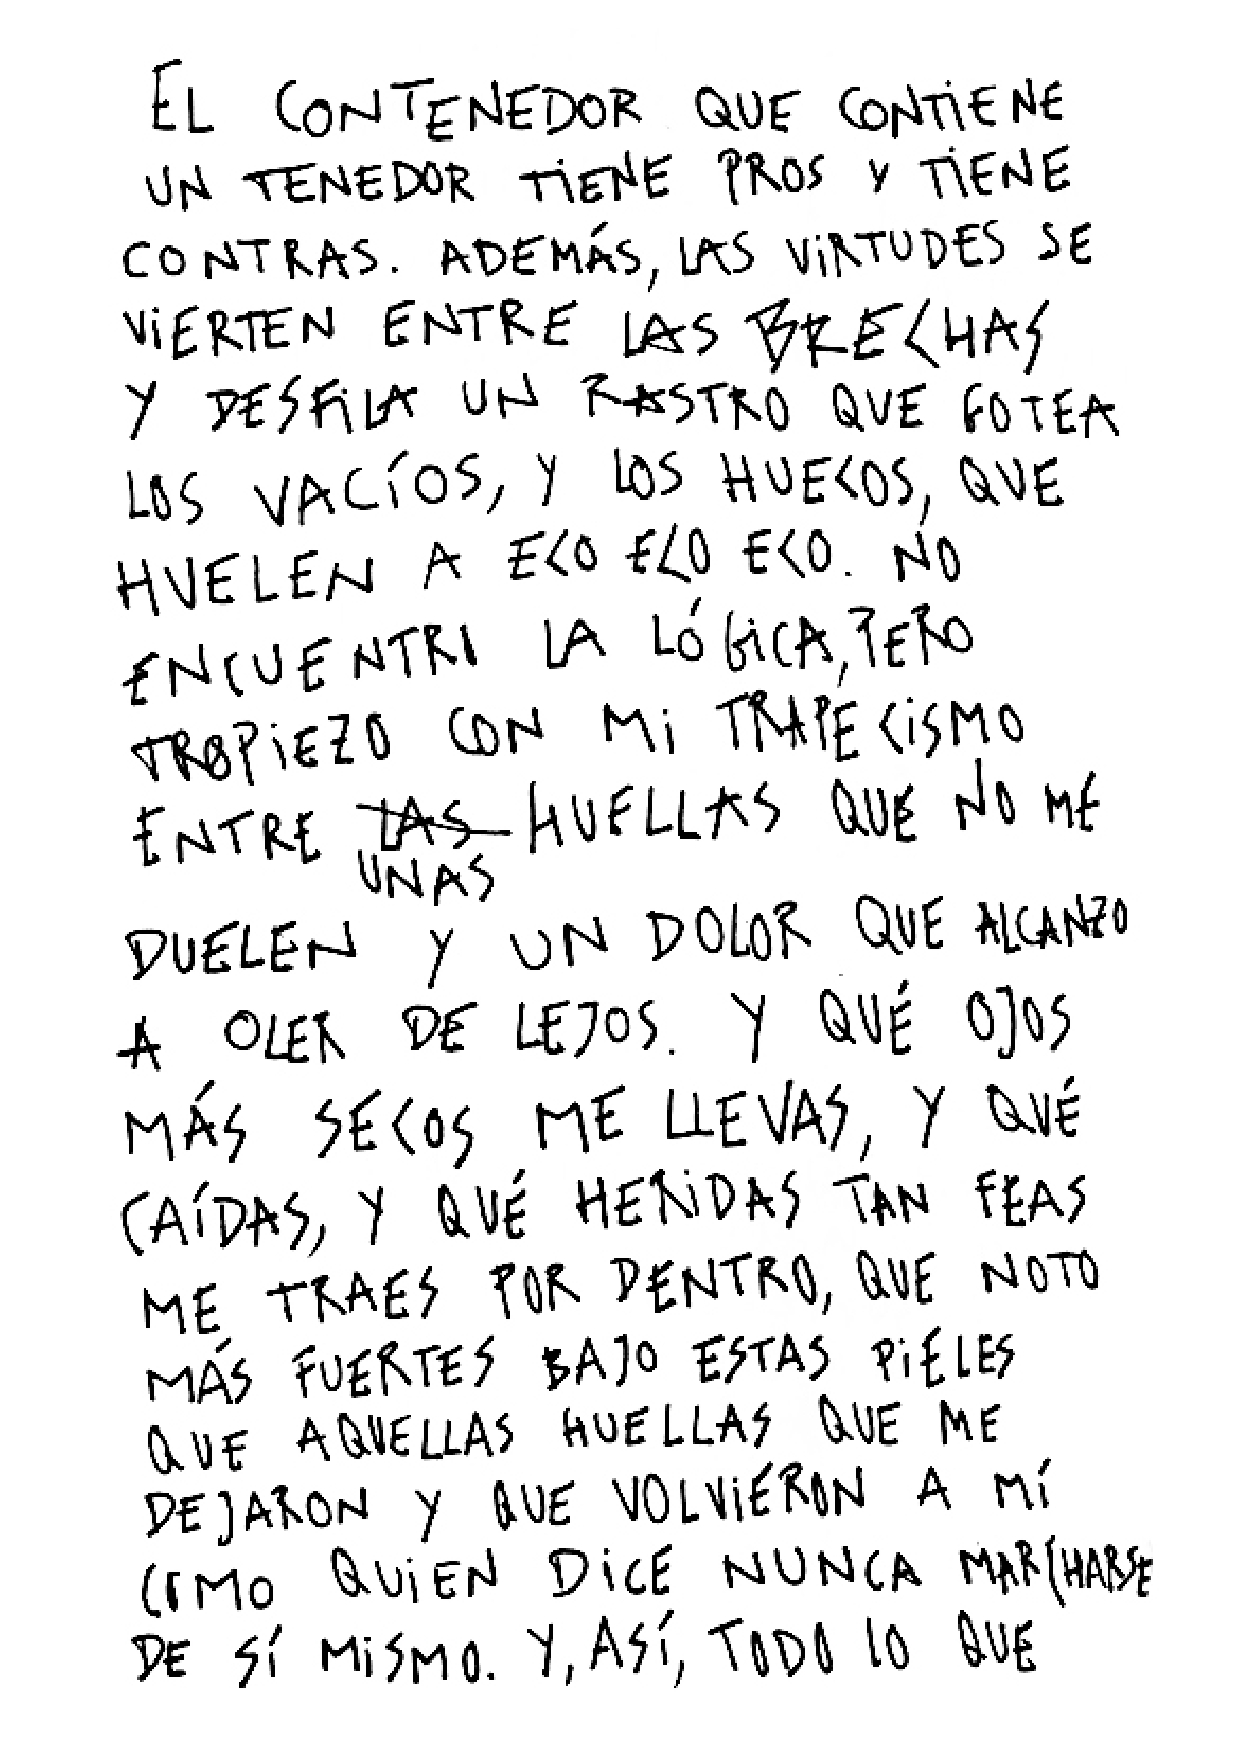 EL CONTENEDOR QUE CONTIENE
UN TENEDOR TIENE PROS Y TIENE
CONTRAS. ADEMÁS, LAS VIRTUDES SE
VIERTEN ENTRE LAS BRECHAS
Y DESFILA UN RASTRO QUE GOTEA
LOS VACÍOS, Y LOS HUECOS, QUE
HUELEN A ECO ECO ECO. NO
ENCUENTRO LA LÓGICA, PERO
TROPIEZO CON MI TRAPECISMO
ENTRE LAS HUELLAS QUE NO ME
UNAS
DUELEN Y UN DOLOR QUE ALCANZO
A OLER DE LEJOS. Y QUÉ OJOS
MÁS SECOS ME LLEVAS, Y QUÉ
CAÍDAS, Y QUÉ HERIDAS TAN FEAS
ME TRAES POR DENTRO, QUE NOTO
MÁS FUERTES BAJO ESTAS PIELES
QUE AQUELLAS HUELLAS QUE ME
DEJARON Y QUE VOLVIERON A MÍ
COMO QUIEN DICE NUNCA MARCHARSE
DE SÍ MISMO. Y, ASÍ, TODO LO QUE